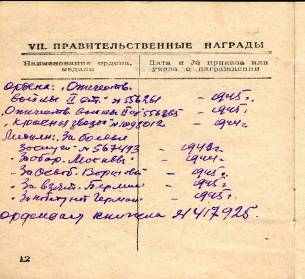 VII. ПРАВИТЕЛЬСТВЕННЫЕ НАГРАДЫ
Наименования ордена, медали
Дата и № приказа или указа о награждении
Ордена: Отечеств.
войны II ст. - 1945г.
Отечеств. войны - 1945г.
"Красная звезда" - 1944г.
Медали: За боевые
заслуги № - 1943г.
За обор. Москвы - 1944г.
За освоб. Варшавы - 1945г.
За взят. Берлина - 1945г.
За победу над Герман. - 1945г.
орденская книжка № 417925.
12